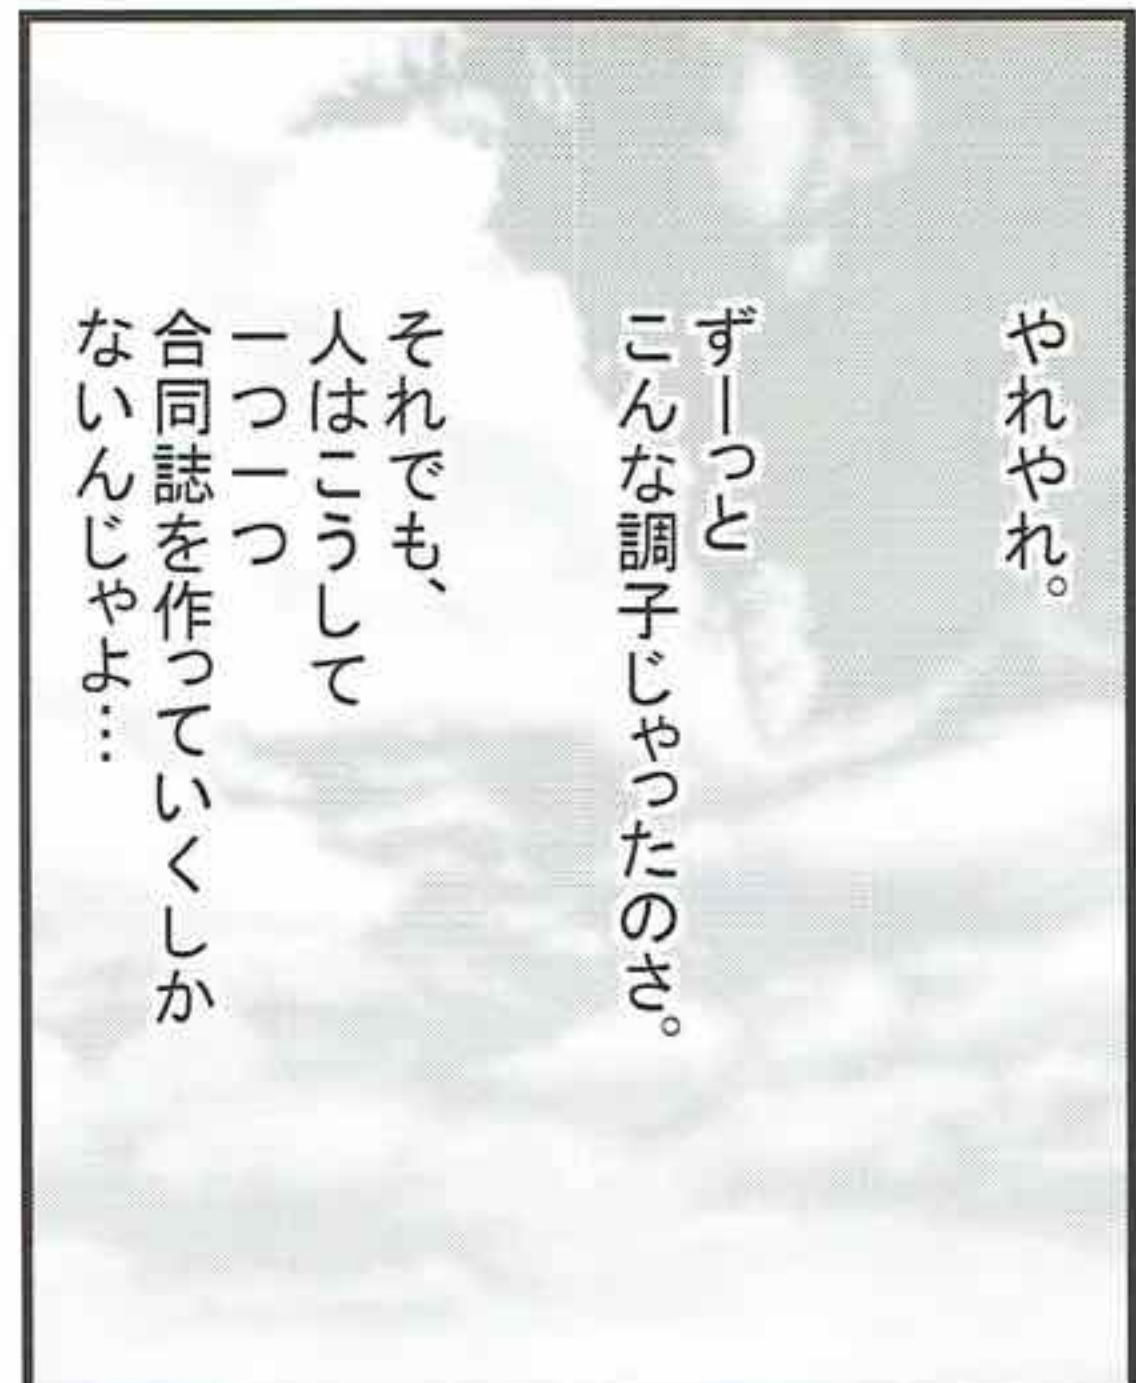 やれやれ。
ずーっと
こんな調子じゃったのさ。
それでも、
人はこうして
一つ一つ
合同誌を作っていくしか
ないんじゃよ…